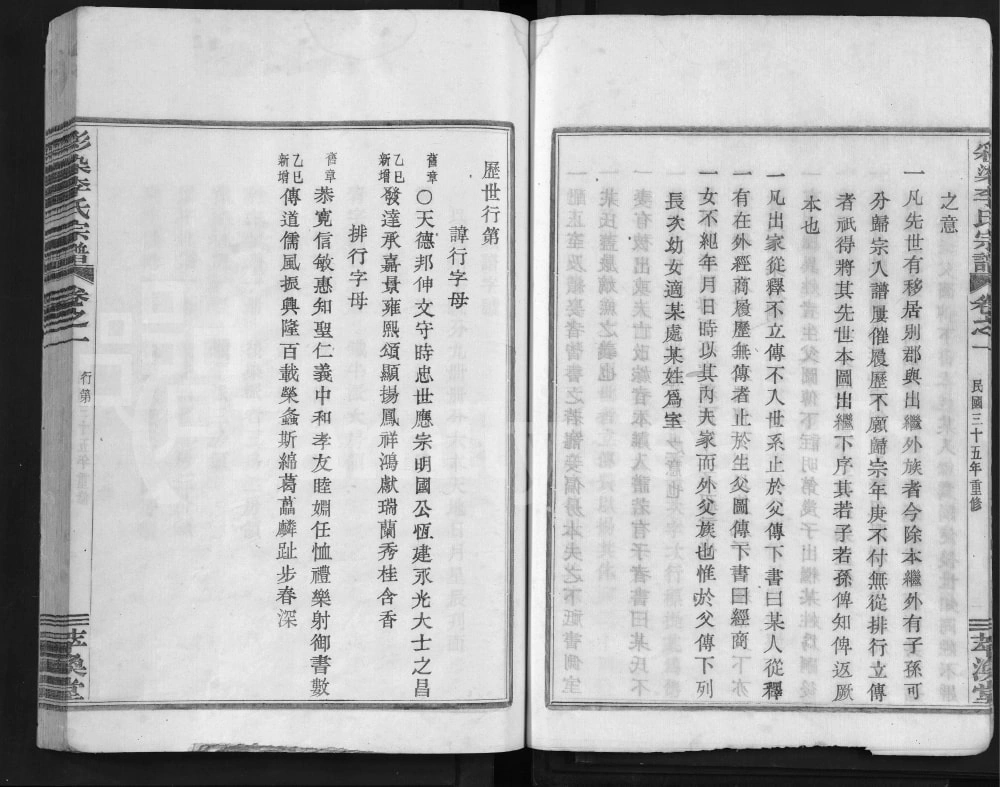 之意
一凡先世有移居別郡與出繼外族者今除本繼外有子孫可
分歸宗入譜屢催履歷不願歸宗年庚不付無從排行立傳
者祇得將其先世本圖出繼下序其若子若孫俾知俾返厥
本也
一凡出家從釋不立傳不入世系止於父傳下書曰某人從釋
一有在外經商履歷無傳者止於生父圖傳下書曰經商
一女不紀年月日時以其內夫家而外父族也惟於父傳下列
長次幼女適某處某姓爲室
李氏宗譜
卷之一
民國三十五年重修
萃渙堂
歷世行第
諱行字母
舊章
〇天德邦伸文守時忠世應宗明國公恆建永光大士之昌
乙巳新增
發達承嘉景雍熙頌顯揚鳳祥鴻猷瑞蘭秀桂含香
排行字母
舊章
恭寬信敏惠知聖仁義中和孝友睦婣任恤禮樂射御書數
乙巳新增
傳道儒風振興隆百載榮螽斯綿葛藟麟趾步春深
李氏宗譜
卷之一
行第
三十五年重修
萃渙堂